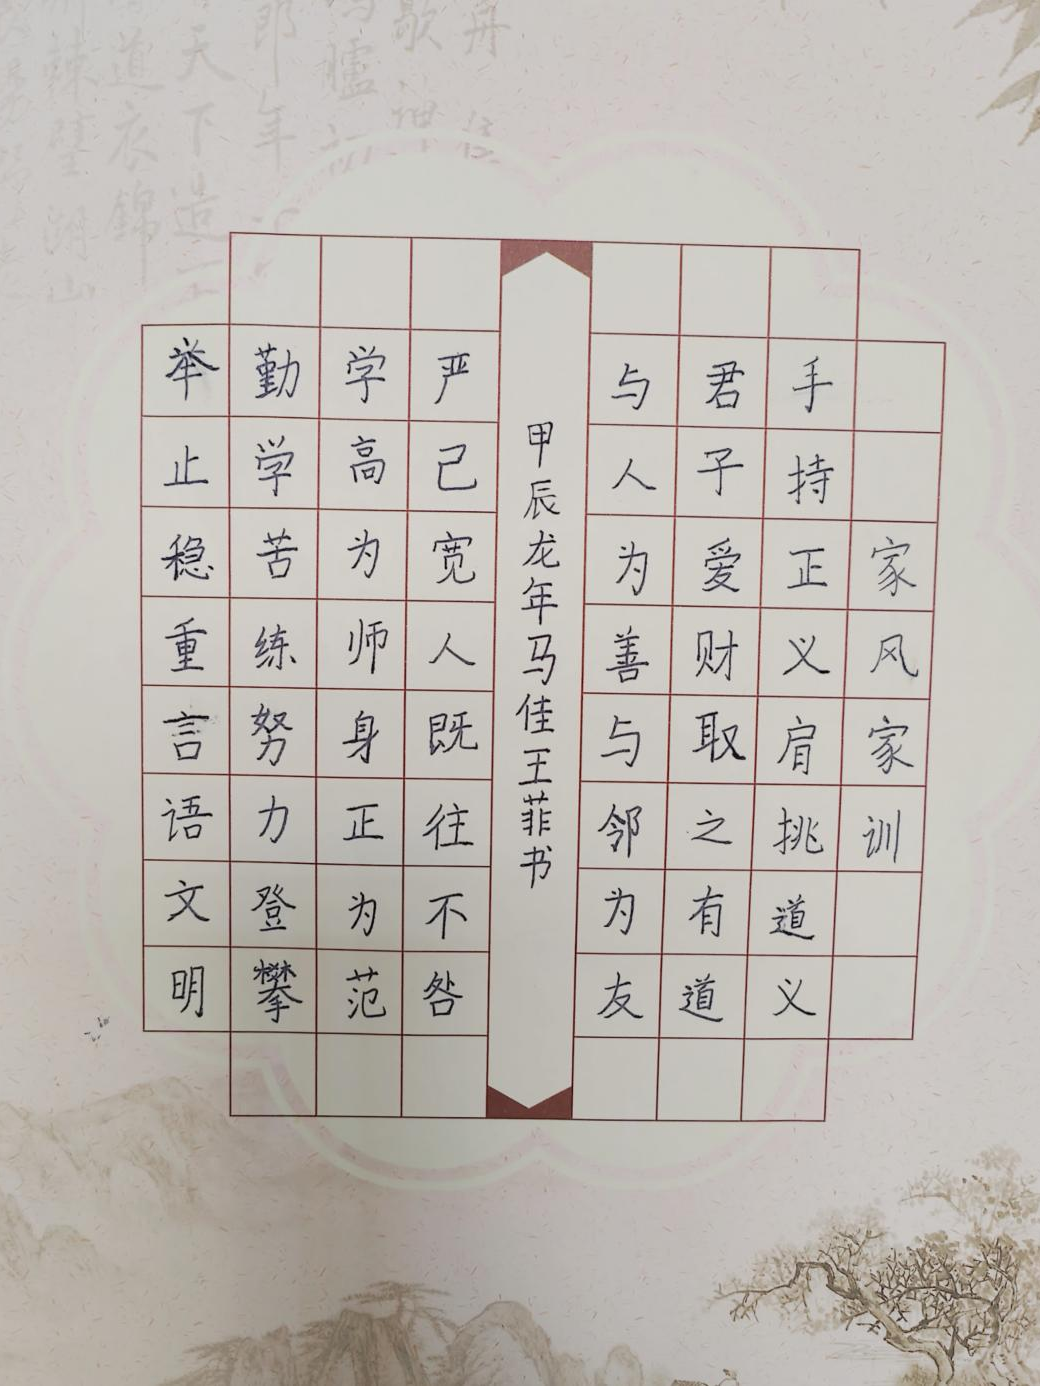 家风家训
手持正义肩挑道义
君子爱财取之有道
与人为善与邻为友
甲辰龙年马佳王菲书
严己宽人既往不咎
学高为师身正为范
勤学苦练努力登攀
举止稳重言语文明